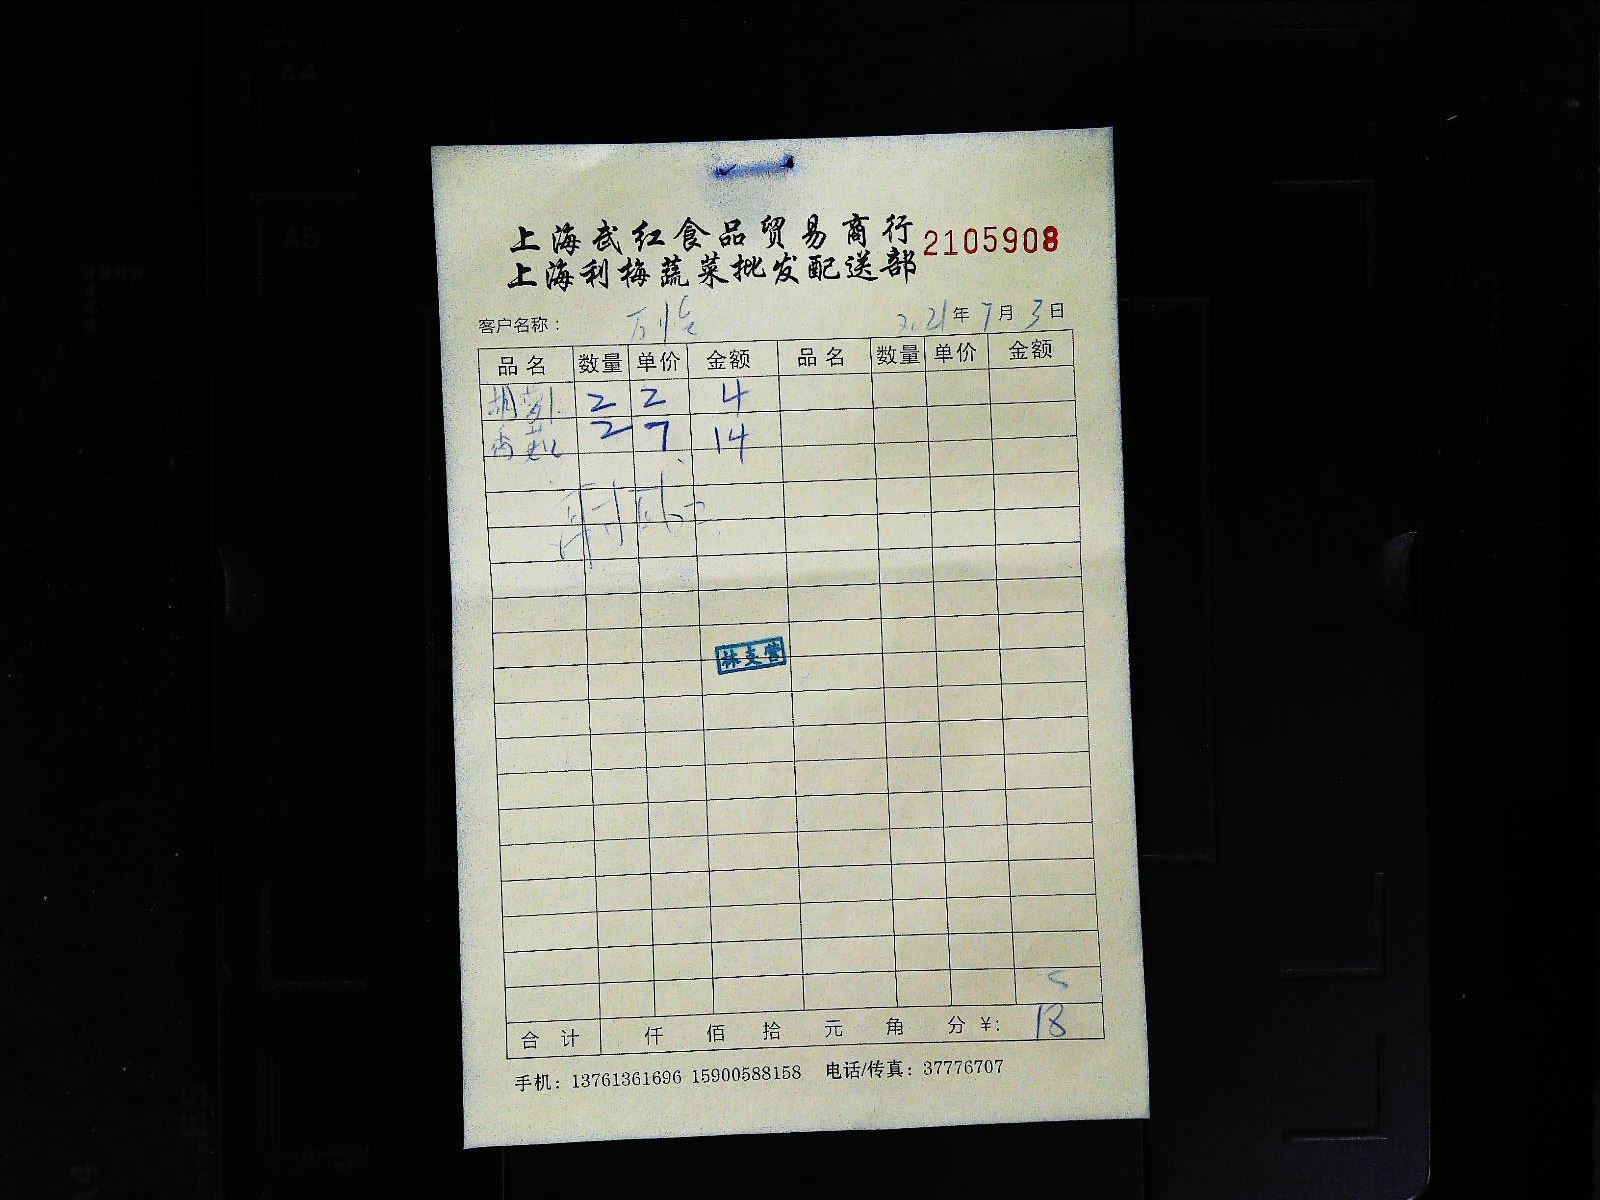 上海武红食品贸易商行 2105908
上海利梅蔬菜批发配送部
客户名称： 万怡 2021年7月3日
品名 数量 单价 金额 品名 数量 单价 金额
胡萝卜 2 2 4
香菇 2 7 14
合计 仟 佰 拾 元 角 分 ¥: 18
手机：13761361696 15900588158 电话/传真：37776707